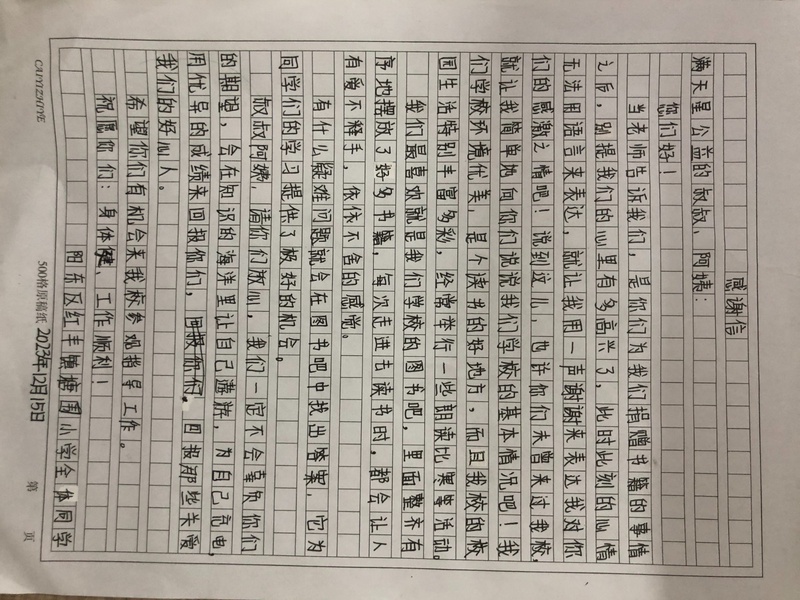 感谢信
满天星公益的叔叔、阿姨：
您们好！
当老师告诉我们，是你们为我们捐赠书籍的事情
之后，别提我们的心里有多高兴了，此时此刻的心情
无法用语言来表达，就让我用一声谢谢来表达我对你
们的感激之情吧！说到这儿，也许你们未曾来过我校，
就让我简单地向你们说说我们学校的基本情况吧！我
们学校环境优美，是个读书的好地方，而且我校的校
园生活特别丰富多彩，经常举行一些朗读比赛等活动。
我们最喜欢就是我们学校的图书吧，里面整齐有
序地摆放了好多书籍，每次走进去读书时，都会让人
有爱不释手，依依不舍的感觉。
有什么疑难问题就会在图书吧中找出答案，它为
同学们的学习提供了极好的机会。
叔叔阿姨，请你们放心，我们一定不会辜负你们
的期望，会在知识的海洋里让自己遨游，为自己充电，
用优异的成绩来回报你们，回报你们，回报那些关爱
我们的好心人。
希望你们有机会来我校参观指导工作。
祝愿你们：身体健、工作顺利！
阳东区红丰镇塘围小学全体同学
2023年12月15日
500格原稿纸 第 页
CAIYIZHIYE